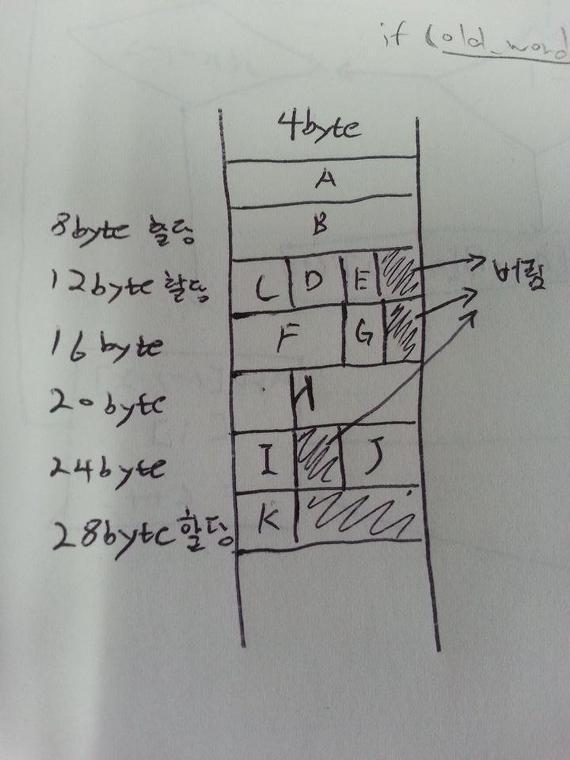 if (old_word
4byte
A
8byte 할당
B
12byte 할당
C D E
버림
16 byte
F G
20 byte
H
24byte
I J
28byte 할당
K